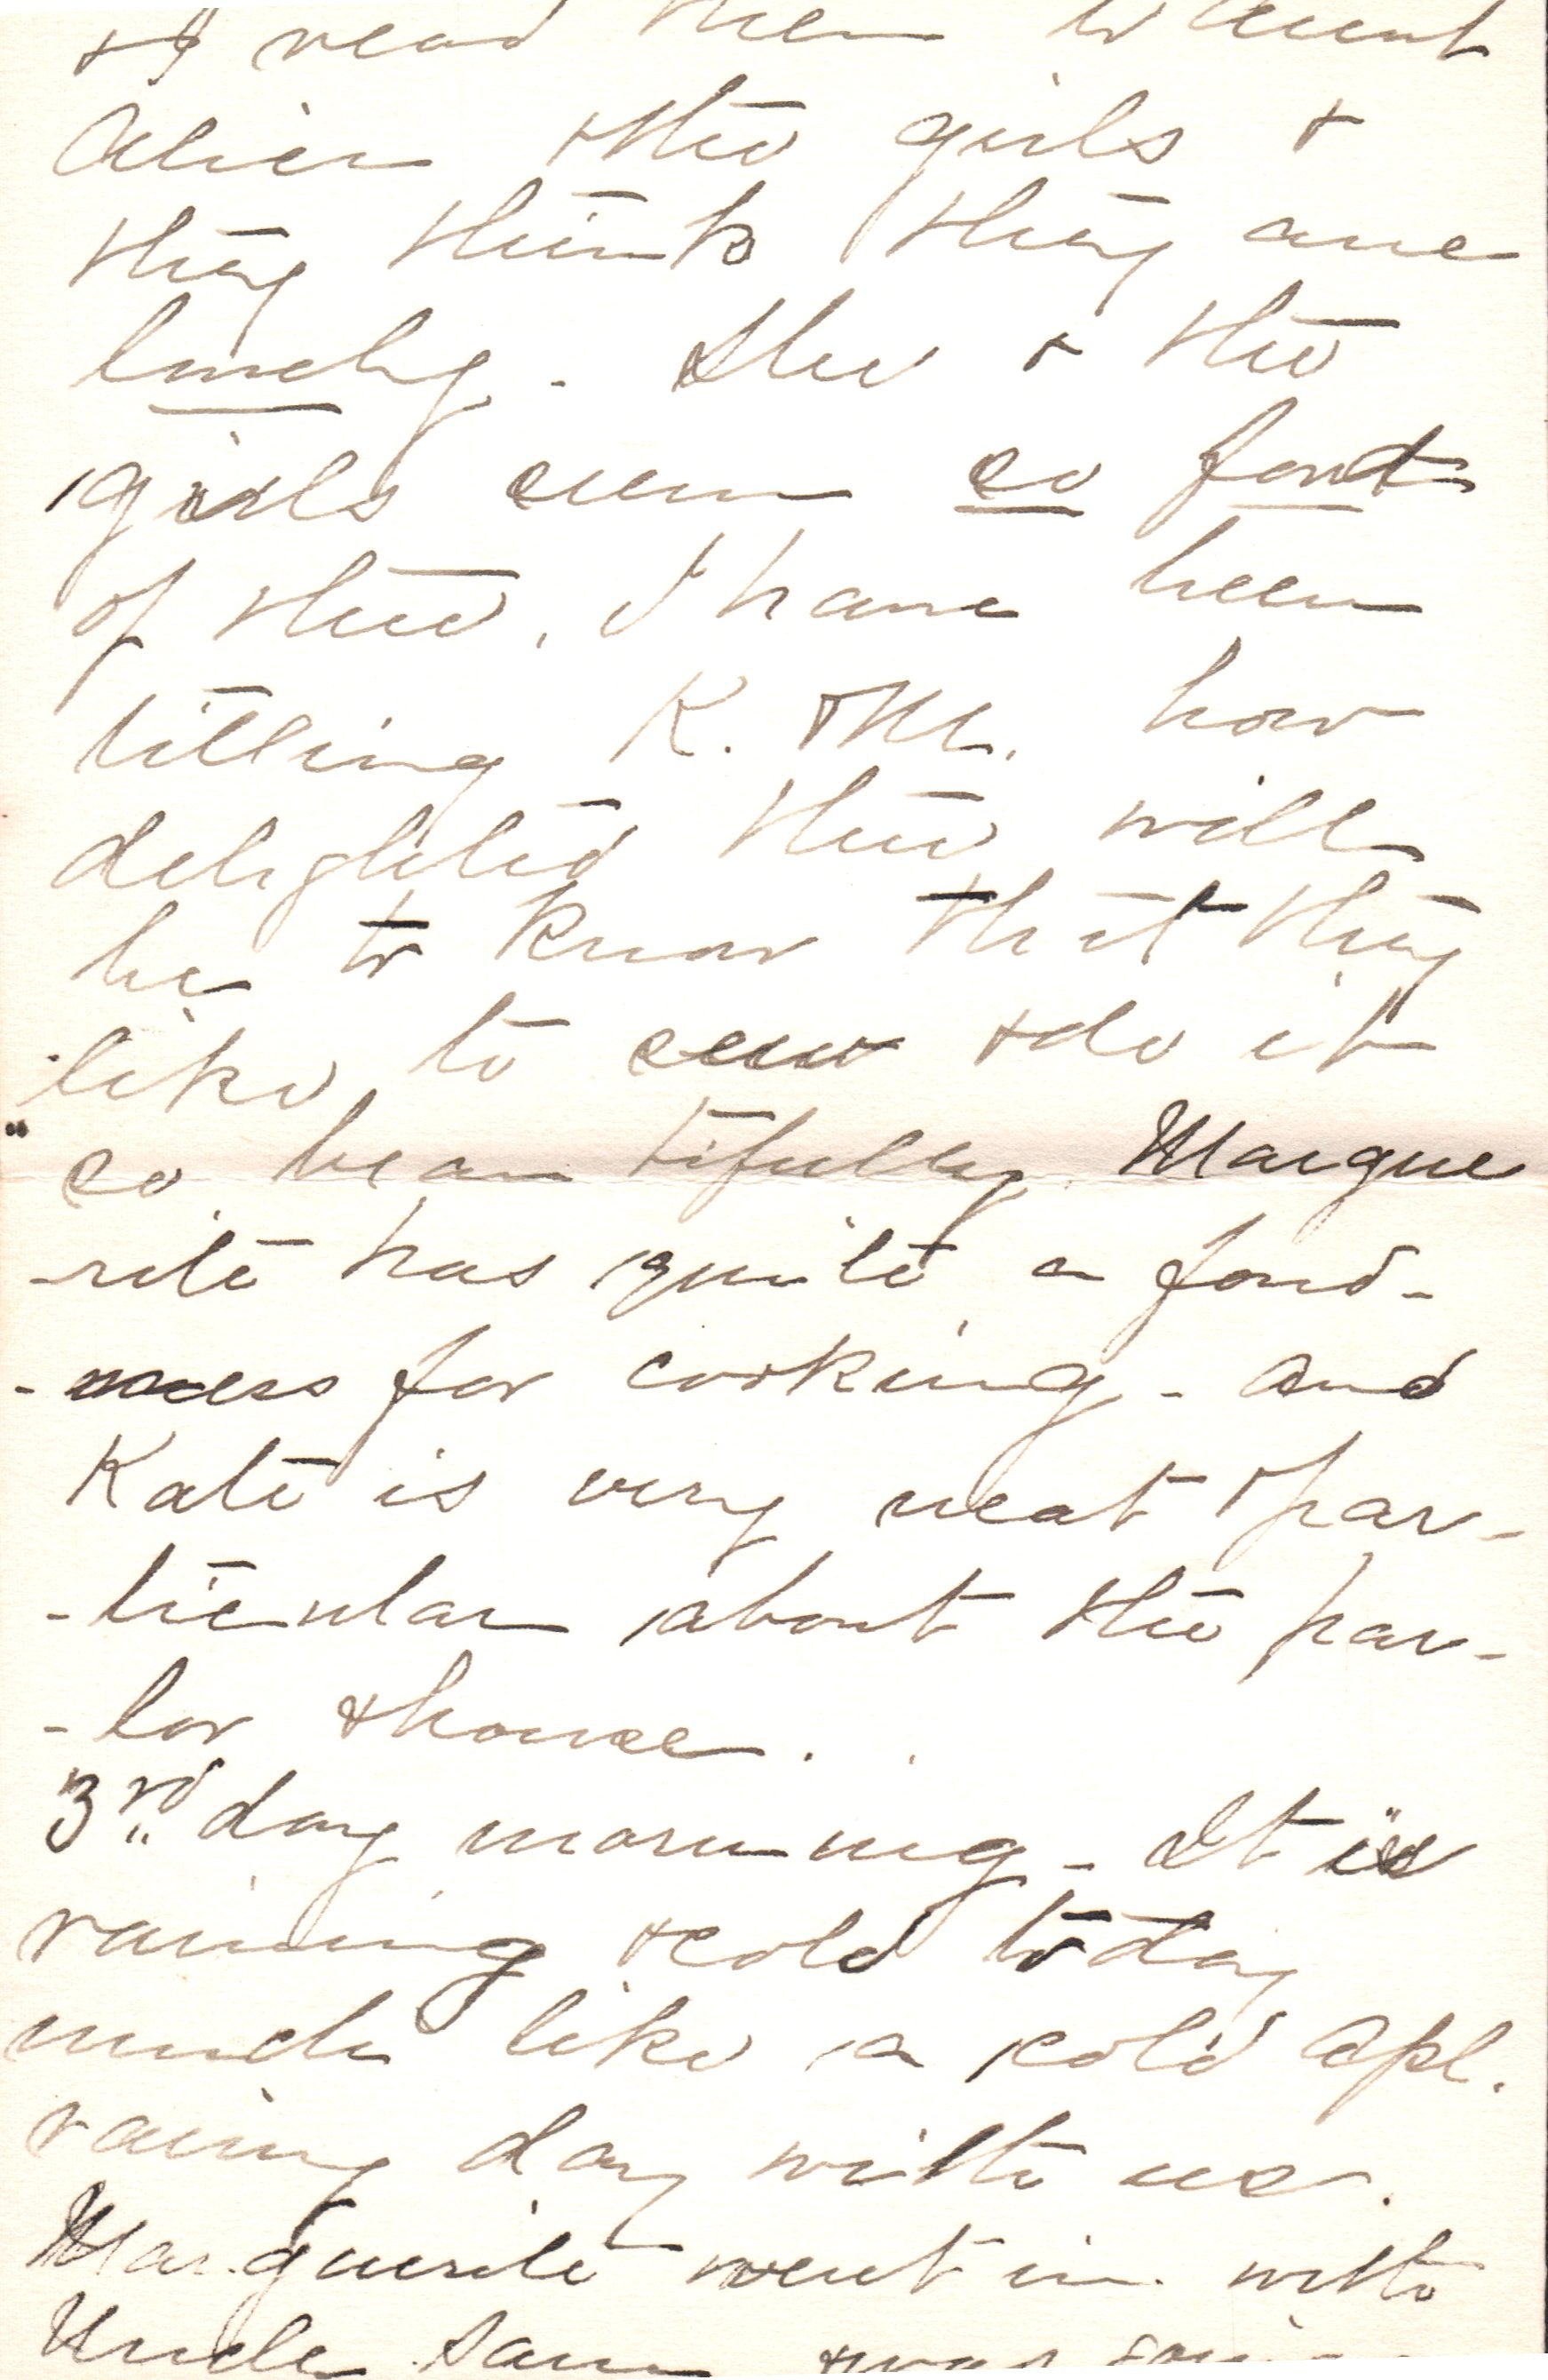 & I read them to Aunt
Alice & the girls &
they think they are
lovely. She & the
girls seem so fond
of thee. I have been
telling K. & M. how
delighted thee will
be to know that they
like to sew & do it
so beautifully. Margue
-rite has quite a fond-
-ness for cooking - and
Kate is very neat & par-
-ticular about the par-
-lor & house.
3rd day morning - It is
raining & cold to day
much like a cold Apl.
rainy day with us.
Marguerite went in with
Uncle Sam & was